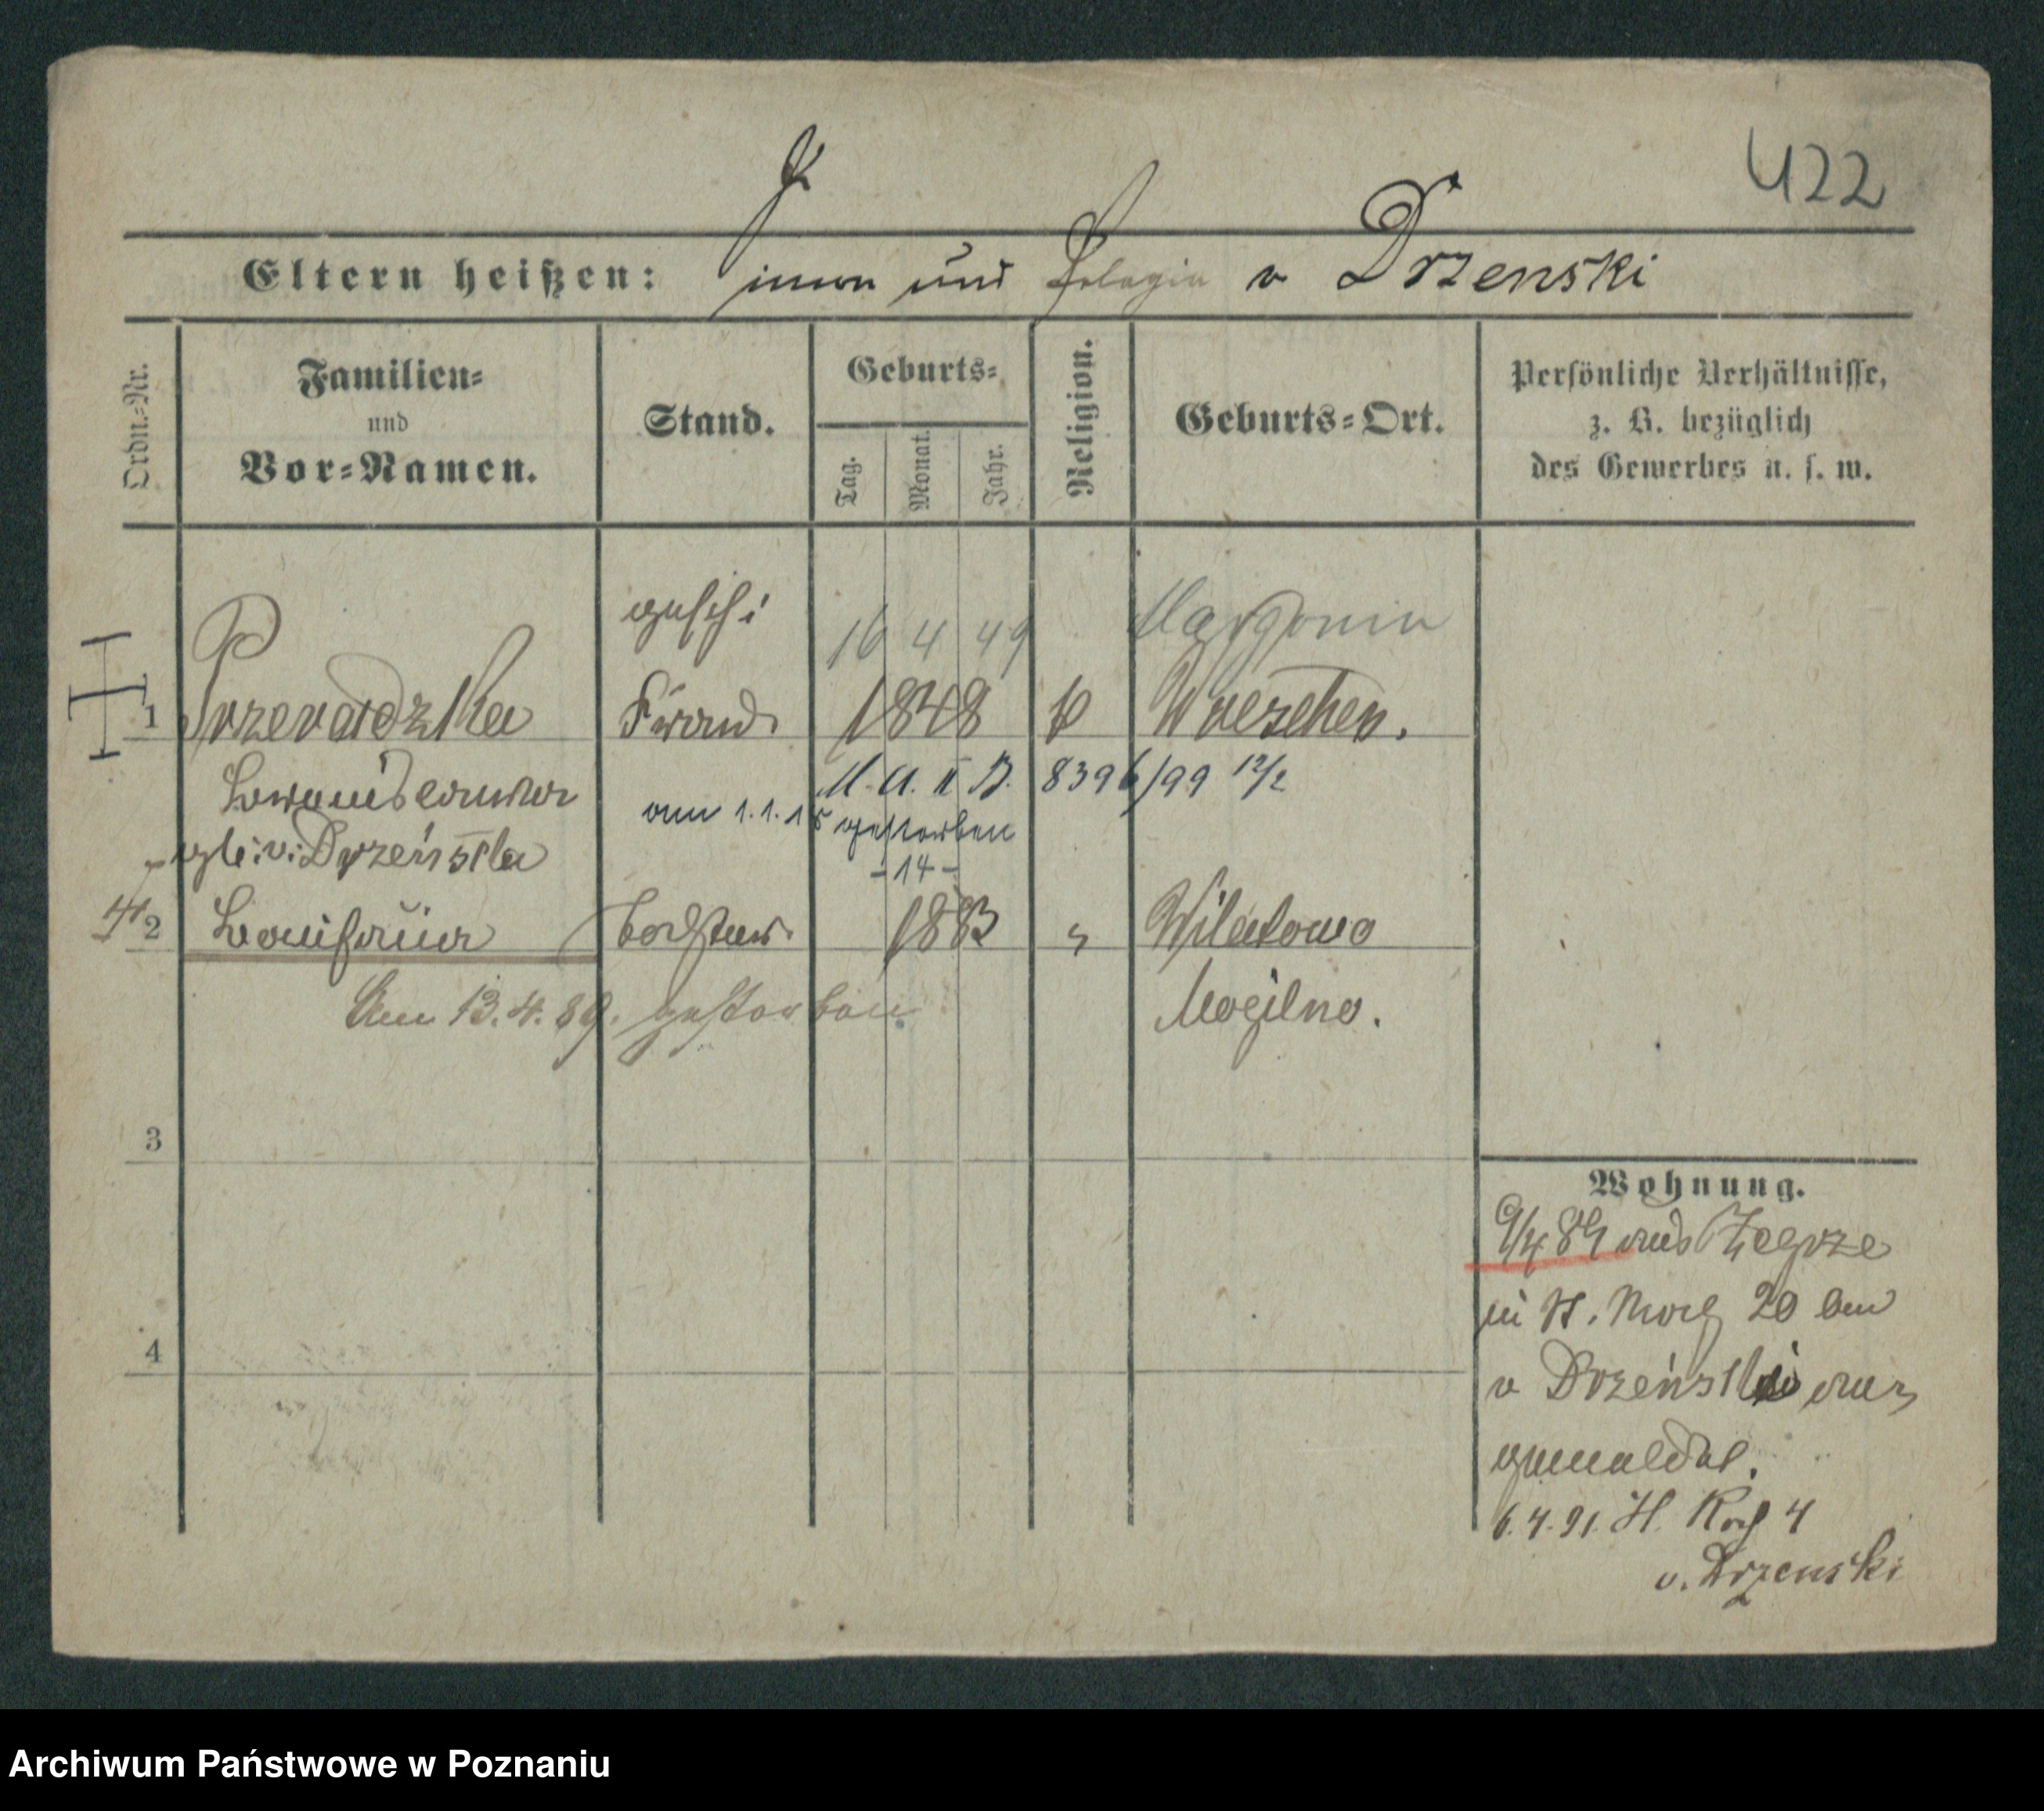 422
Eltern heißen: und Pelagia v Drzenski
Ordn.-Nr.
Familien-
und
Vor-Namen.
Stand.
Geburts-
Tag.
Monat.
Jahr.
Religion.
Geburts-Ort.
Persönliche Verhältnisse,
z. B. bezüglich
des Gewerbes u. s. w.
gesch:
16 4 49 Margonin
1 1848 k Wreschen.
M. A. II B. 8396/99 12/2
am 1.1.15 gestorben
-14-
geb: v: Drzeńska
2 Tochter 1883 " Wilatowo
Am 13.4.89. gestorben Mogilno.
3
Wohnung.
9/4 89 aus Zegrze
in H. 20 bei
4
v Drzeński
gemeldet.
6.4.91. H. 4
v. Drzenski
Archiwum Państwowe w Poznaniu